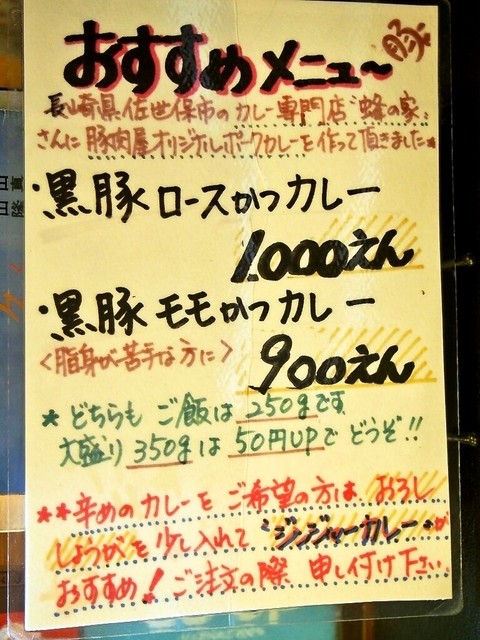 おすすめメニュー
豚
長崎県佐世保市のカレー専門店"蜂の家"
さんに豚肉屋オリジナルポークカレーを作って頂きました★
黒豚ロースかつカレー
1.000えん
黒豚モモかつカレー
<脂身が苦手な方に>
900えん
*どちらもご飯は250gです
大盛り350gは50円UPでどうぞ!!
**辛めのカレーをご希望の方は、おろし
しょうがを少し入れて"ジンジャーカレー"が
おすすめ!ご注文の際 申し付け下さい